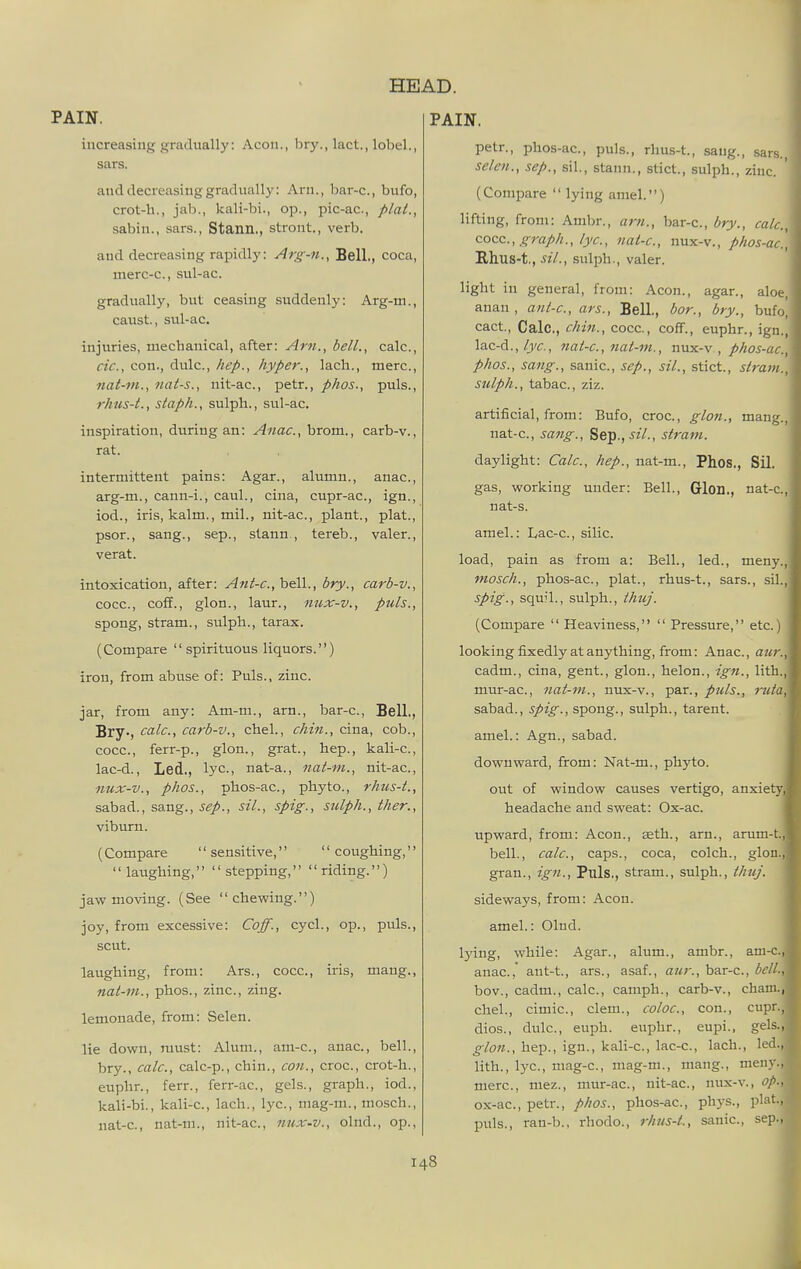 HEAD.
PAIN.
increasing gradually: Acon., bry., lact., lobel.,
sars.
and decreasing gradually: Arn., bar-c., bufo,
crot-h., jab., kali-bi., op., pic-ac., plat.,
sabin., sars., Stann., stront., verb.
and decreasing rapidly: Arg-n., Bell., coca,
merc-c., sul-ac.
gradually, but ceasing suddenly: Arg-m.,
caust., sul-ac.
injuries, mechanical, after: Arn., bell., calc.,
cic., con., dulc., hep., hyper., lach., merc.,
nat-m., nat-s., nit-ac., petr., phos., puls.,
rhus-t., staph., sulph., sul-ac.
inspiration, during an: Anac., brom., carb-v.,
rat.
intermittent pains: Agar., alumn., anac.,
arg-m., cann-i., caul., cina, cupr-ac., ign.,
iod., iris, kalm., mil., nit-ac., plant., plat.,
psor., sang., sep., stann., tereb., valer.,
verat.
intoxication, after: Ant-c., bell., bry., carb-v.,
cocc., coff., glon., laur., nux-v., puls.,
spong, stram., sulph., tarax.
(Compare “spirituous liquors.”)
iron, from abuse of: Puls., zinc.
jar, from any: Am-m., arn., bar-c., Bell.,
Bry., calc., carb-v., chel., chin., cina, cob.,
cocc., ferr-p., glon., grat., hep., kali-c.,
lac-d., Led., lyc., nat-a., nat-m., nit-ac.,
nux-v., phos., phos-ac., phyto., rhus-t.,
sabad., sang., sep., sil., spig., sulph., ther.,
viburn.
(Compare “sensitive,” “coughing,”
“laughing,” “stepping,” “riding.”)
jaw moving. (See “chewing.”)
joy, from excessive: Coff., cycl., op., puls.,
scut.
laughing, from: Ars., cocc., iris, mang.,
nat-m., phos., zinc., zing.
lemonade, from: Selen.
lie down, must: Alum., am-c., anac., bell.,
bry., calc., calc-p., chin., con., croc., crot-h.,
euphr., ferr., ferr-ac., gels., graph., iod.,
kali-bi., kali-c., lach., lyc., mag-m., mosch.,
nat-c., nat-m., nit-ac., nux-v., olnd., op.,
PAIN.
petr., phos-ac., puls., rhus-t., sang., sars.,
selen., sep., sil., stann., stict., sulph., zinc.
(Compare “lying amel.”)
lifting, from: Ambr., arn., bar-c., bry., calc.,
cocc., graph., lyc., nat-c., nux-v., phos-ac.,
Rhus-t., sil., sulph., valer.
light in general, from: Acon., agar., aloe,
anan., ant-c., ars., Bell., bor., bry., bufo,
cact., Calc., chin., cocc., coff., euphr., ign.,
lac-d., lyc., nat-c., nat-m., nux-v., phos-ac.,
phos., sang., sanic., sep., sil., stict., stram.,
sulph., tabac., ziz.
artificial, from: Bufo, croc., glon., mang.,
nat-c., sang., Sep., sil., stram.
daylight: Calc., hep., nat-m., Phos., Sil.
gas, working under: Bell., Glon., nat-c.,
nat-s.
amel.: Lac-c., silic.
load, pain as from a: Bell., led., meny.,
mosch., phos-ac., plat., rhus-t., sars., sil.,
spig., squil., sulph., thuj.
(Compare “Heaviness,” “Pressure,” etc.)
looking fixedly at anything, from: Anac., aur.,
cadm., cina, gent., glon., helon., ign., lith.,
mur-ac., nat-m., nux-v., par., puls., ruta,
sabad., spig., spong., sulph., tarent.
amel.: Agn., sabad.
downward, from: Nat-m., phyto.
out of window causes vertigo, anxiety,
headache and sweat: Ox-ac.
upward, from: Acon., æth., arn., arum-t.,
bell., calc., caps., coca, colch., glon.,
gran., ign., Puls., stram., sulph., thuj.
sideways, from: Acon.
amel.: Olnd.
lying, while: Agar., alum., ambr., am-c.,
anac., ant-t., ars., asaf., aur., bar-c., bell.,
bov., cadm., calc., camph., carb-v., cham.,
chel., cimic., clem., coloc., con., cupr.,
dios., dulc., euph. euphr., eupi., gels.,
glon., hep., ign., kali-c., lac-c., lach., led.,
lith., lyc., mag-c., mag-m., mang., meny.,
merc., mez., mur-ac., nit-ac., nux-v., op.,
ox-ac., petr., phos., phos-ac., phys., plat.,
puls., ran-b., rhodo., rhus-t., sanic., sep.,
148